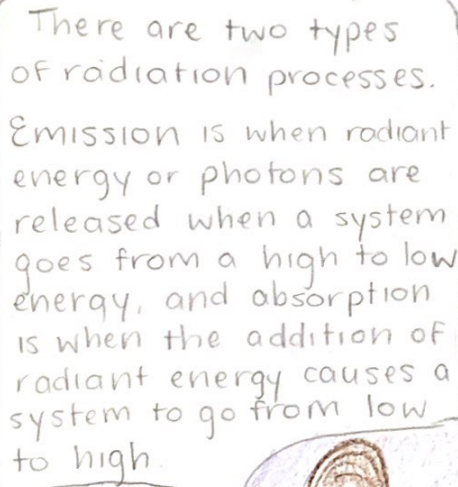 There are two types
of radiation processes.
Emission is when radiant
energy or photons are
released when a system
goes from a high to low
energy, and absorption
is when the addition of
radiant energy causes a
system to go from low
to high.